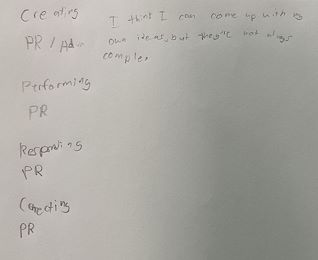 Creating
I think I can come up with my
PR / Adv
own ideas, but they're not always
complex
Performing
PR
Responding
PR
Connecting
PR